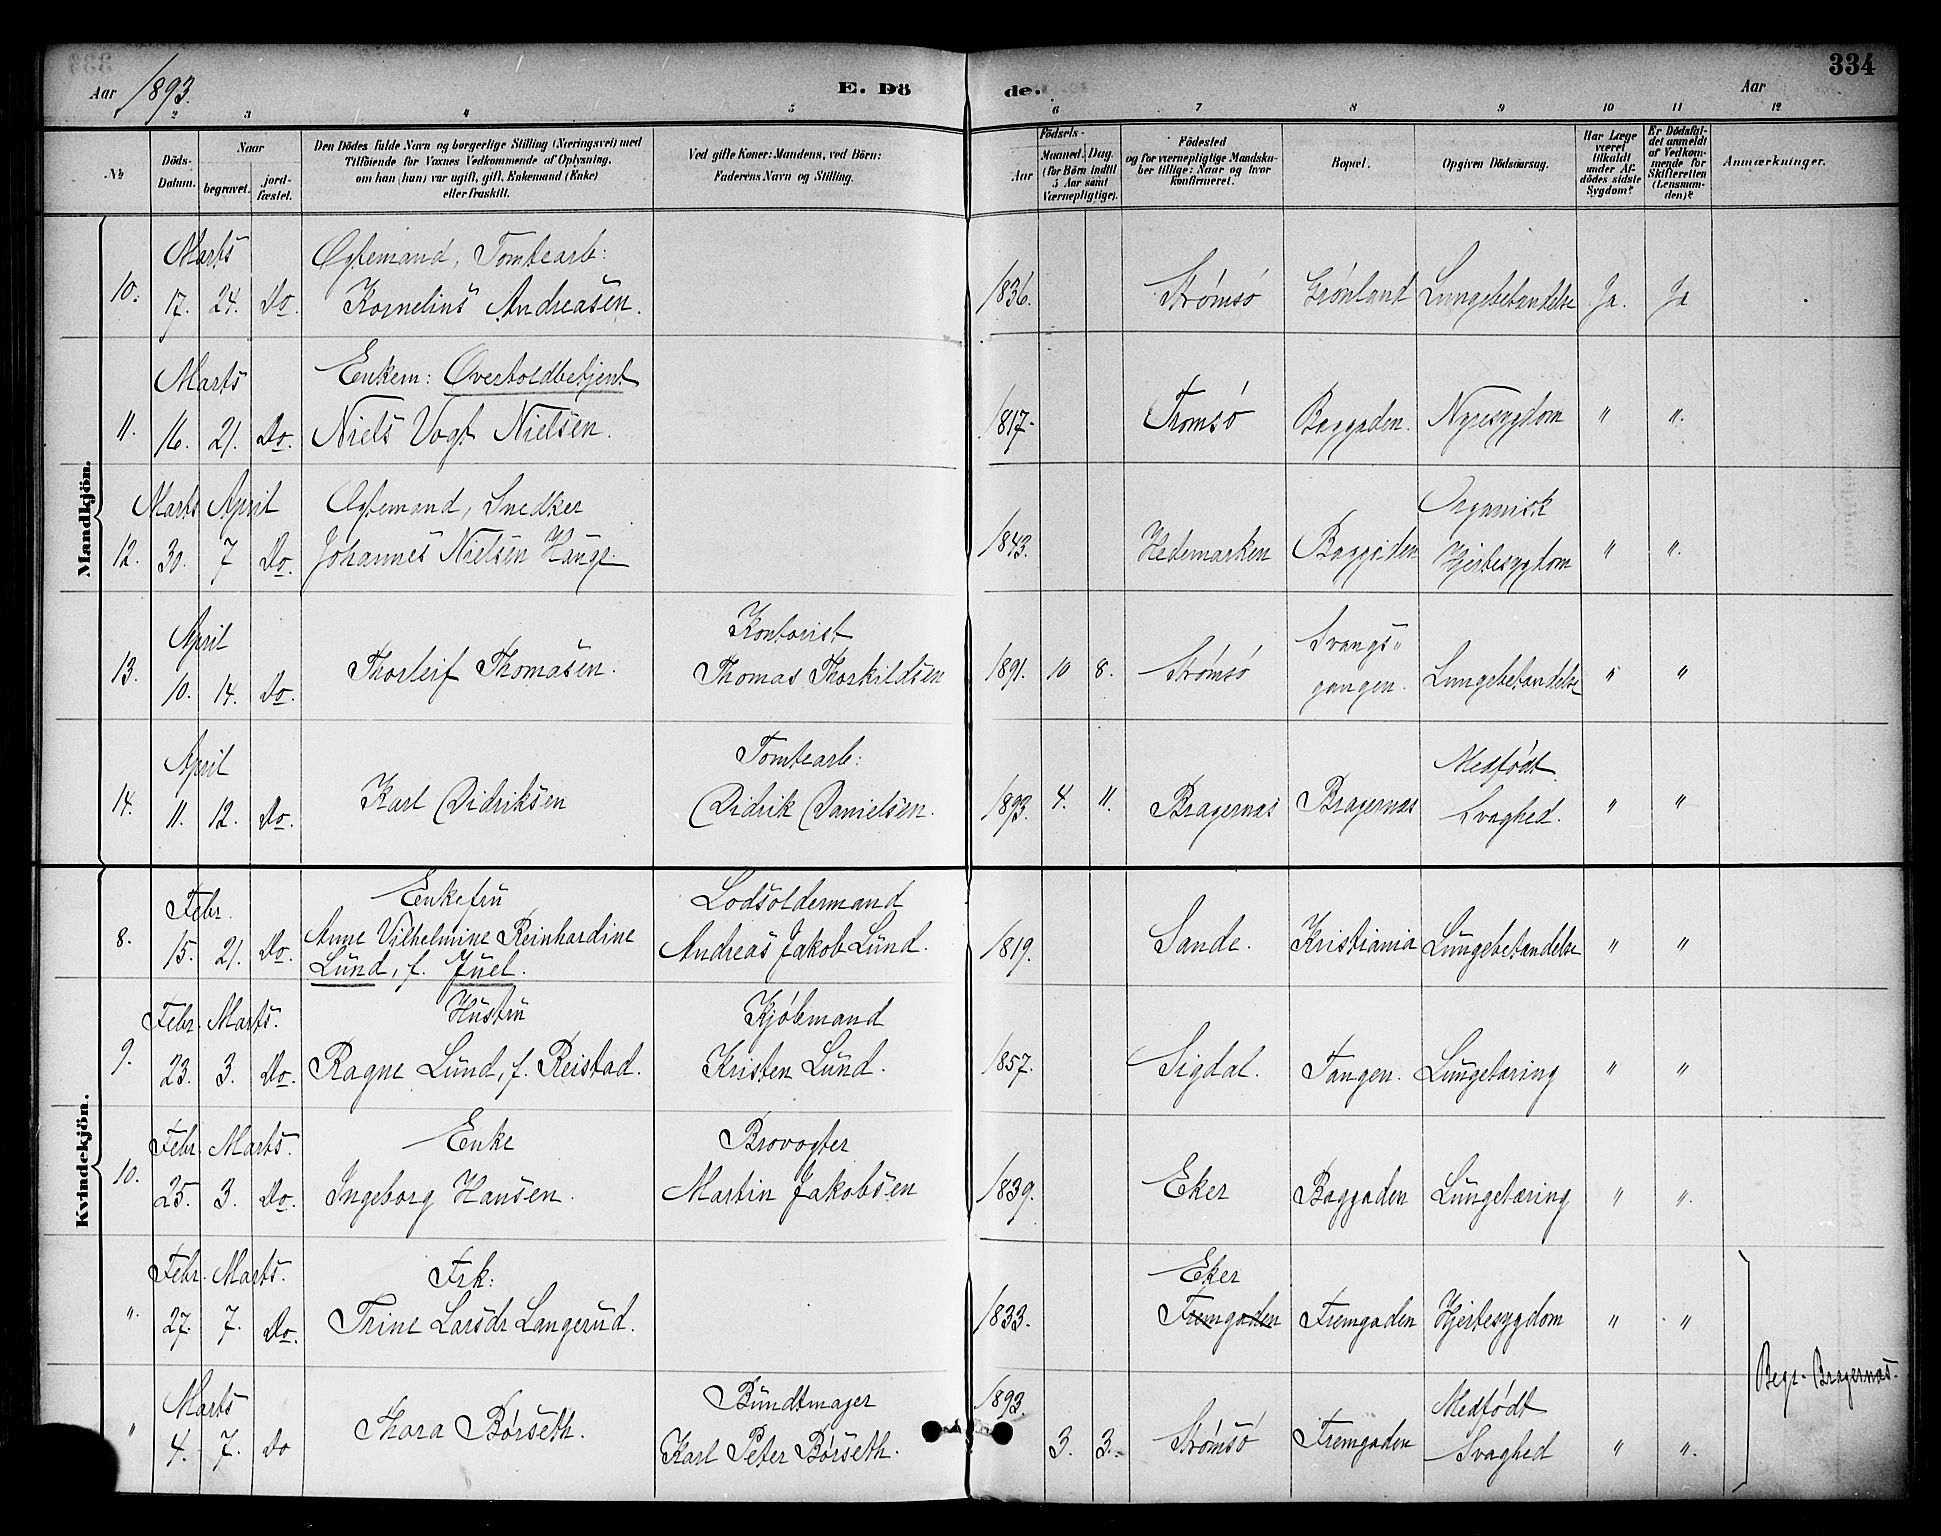 334
Aar 1893. E. Dö de. Aar
2 3 4 5 6 7 8 9 10 11 12
№
Döds-Datum.
Naar
begravet.
jord-fæstet.
Den Dödes fulde Navn og borgerlige Stilling (Næringsvei) med
Tilföiende for Voxnes Vedkommende af Oplysning,
om han (hun) var ugift, gift, Enkemand (Enke)
eller fraskilt.
Ved gifte Koner: Mandens, ved Börn:
Faderens Navn og Stilling.
Födsels-
Aar
Maaned. Dag.
(for Börn indtil
5 Aar samt
Værnepligtige).
Födested
og for værnepligtige Mandska-
ber tillige: Naar og hvor
konfirmeret.
Bopæl.
Opgiven Dödsaarsag.
Har Læge
været
tilkaldt
under Af-
dödes sidste
Sygdom?
Er Dödsfal-
det anmeldt
af Vedkom-
mende for
Skifteretten
(Lensman-
den)?
Anmærkninger.
Mandkjön.
Marts Ogtemand, Tomtearb:
10. 17. 24. Do Kornelius Andreasen. 1836. Strømsø Grønland Lungebetændelse Ja. Ja
Marts Enkem: Overtoldbetjent
11. 16. 21. Do. Niels Vogt Nielsen. 1817. Tromsø Baggaden. Nyresygdom " "
Marts April Ogtemand, Snedker Organisk
12. 30. 7 Do. Johannes Nielsen Hauge 1843. Hedemarken Baggaden Hjertesygdom " "
April Kontorist Svangs"
13. 10. 14. Do. Thorleif Thomasen. Thomas Thorkildsen 1891. 10 8. Strømsø gangen. Lungebetændelse " "
April Tomtearb: Medfødt
14. 11. 12. Do. Karl Didriksen Didrik Danielsen. 1893. 4. 11. Bragernæs Bragernæs Svaghed. " "
Kvindekjön.
Febr. Enkefru Lodsoldermand
8. 15. 21. Do. Anne Vilhelmine Reinhardine Andreas Jakob Lund. 1819. Sande. Kristiania Lungebetændelse " "
Lund, f. Juel.
Febr. Marts. Hustru Kjøbmand
9. 23. 3. Do. Ragne Lund, f. Reistad. Kristen Lund. 1857. Sigdal. Tangen. Lungetæring " "
Febr. Marts. Enke Brovogter
10. 25. 3. Do. Ingeborg Hansen. Martin Jakobsen 1839. Eker Baggaden Lungetæring " "
Febr. Marts. Frk: Eker
" 27. 7. Do. Trine Larsdr Langerud. 1833. Fremgaden Fremgaden Hjertesygdom " "
Begr. Bragernæs.
Marts Bundtmager 1893 Medfødt
" 4. 7. Do Thora Børseth. Karl Peter Børseth. 3. 3. Strømsø Fremgaden Svaghed " "